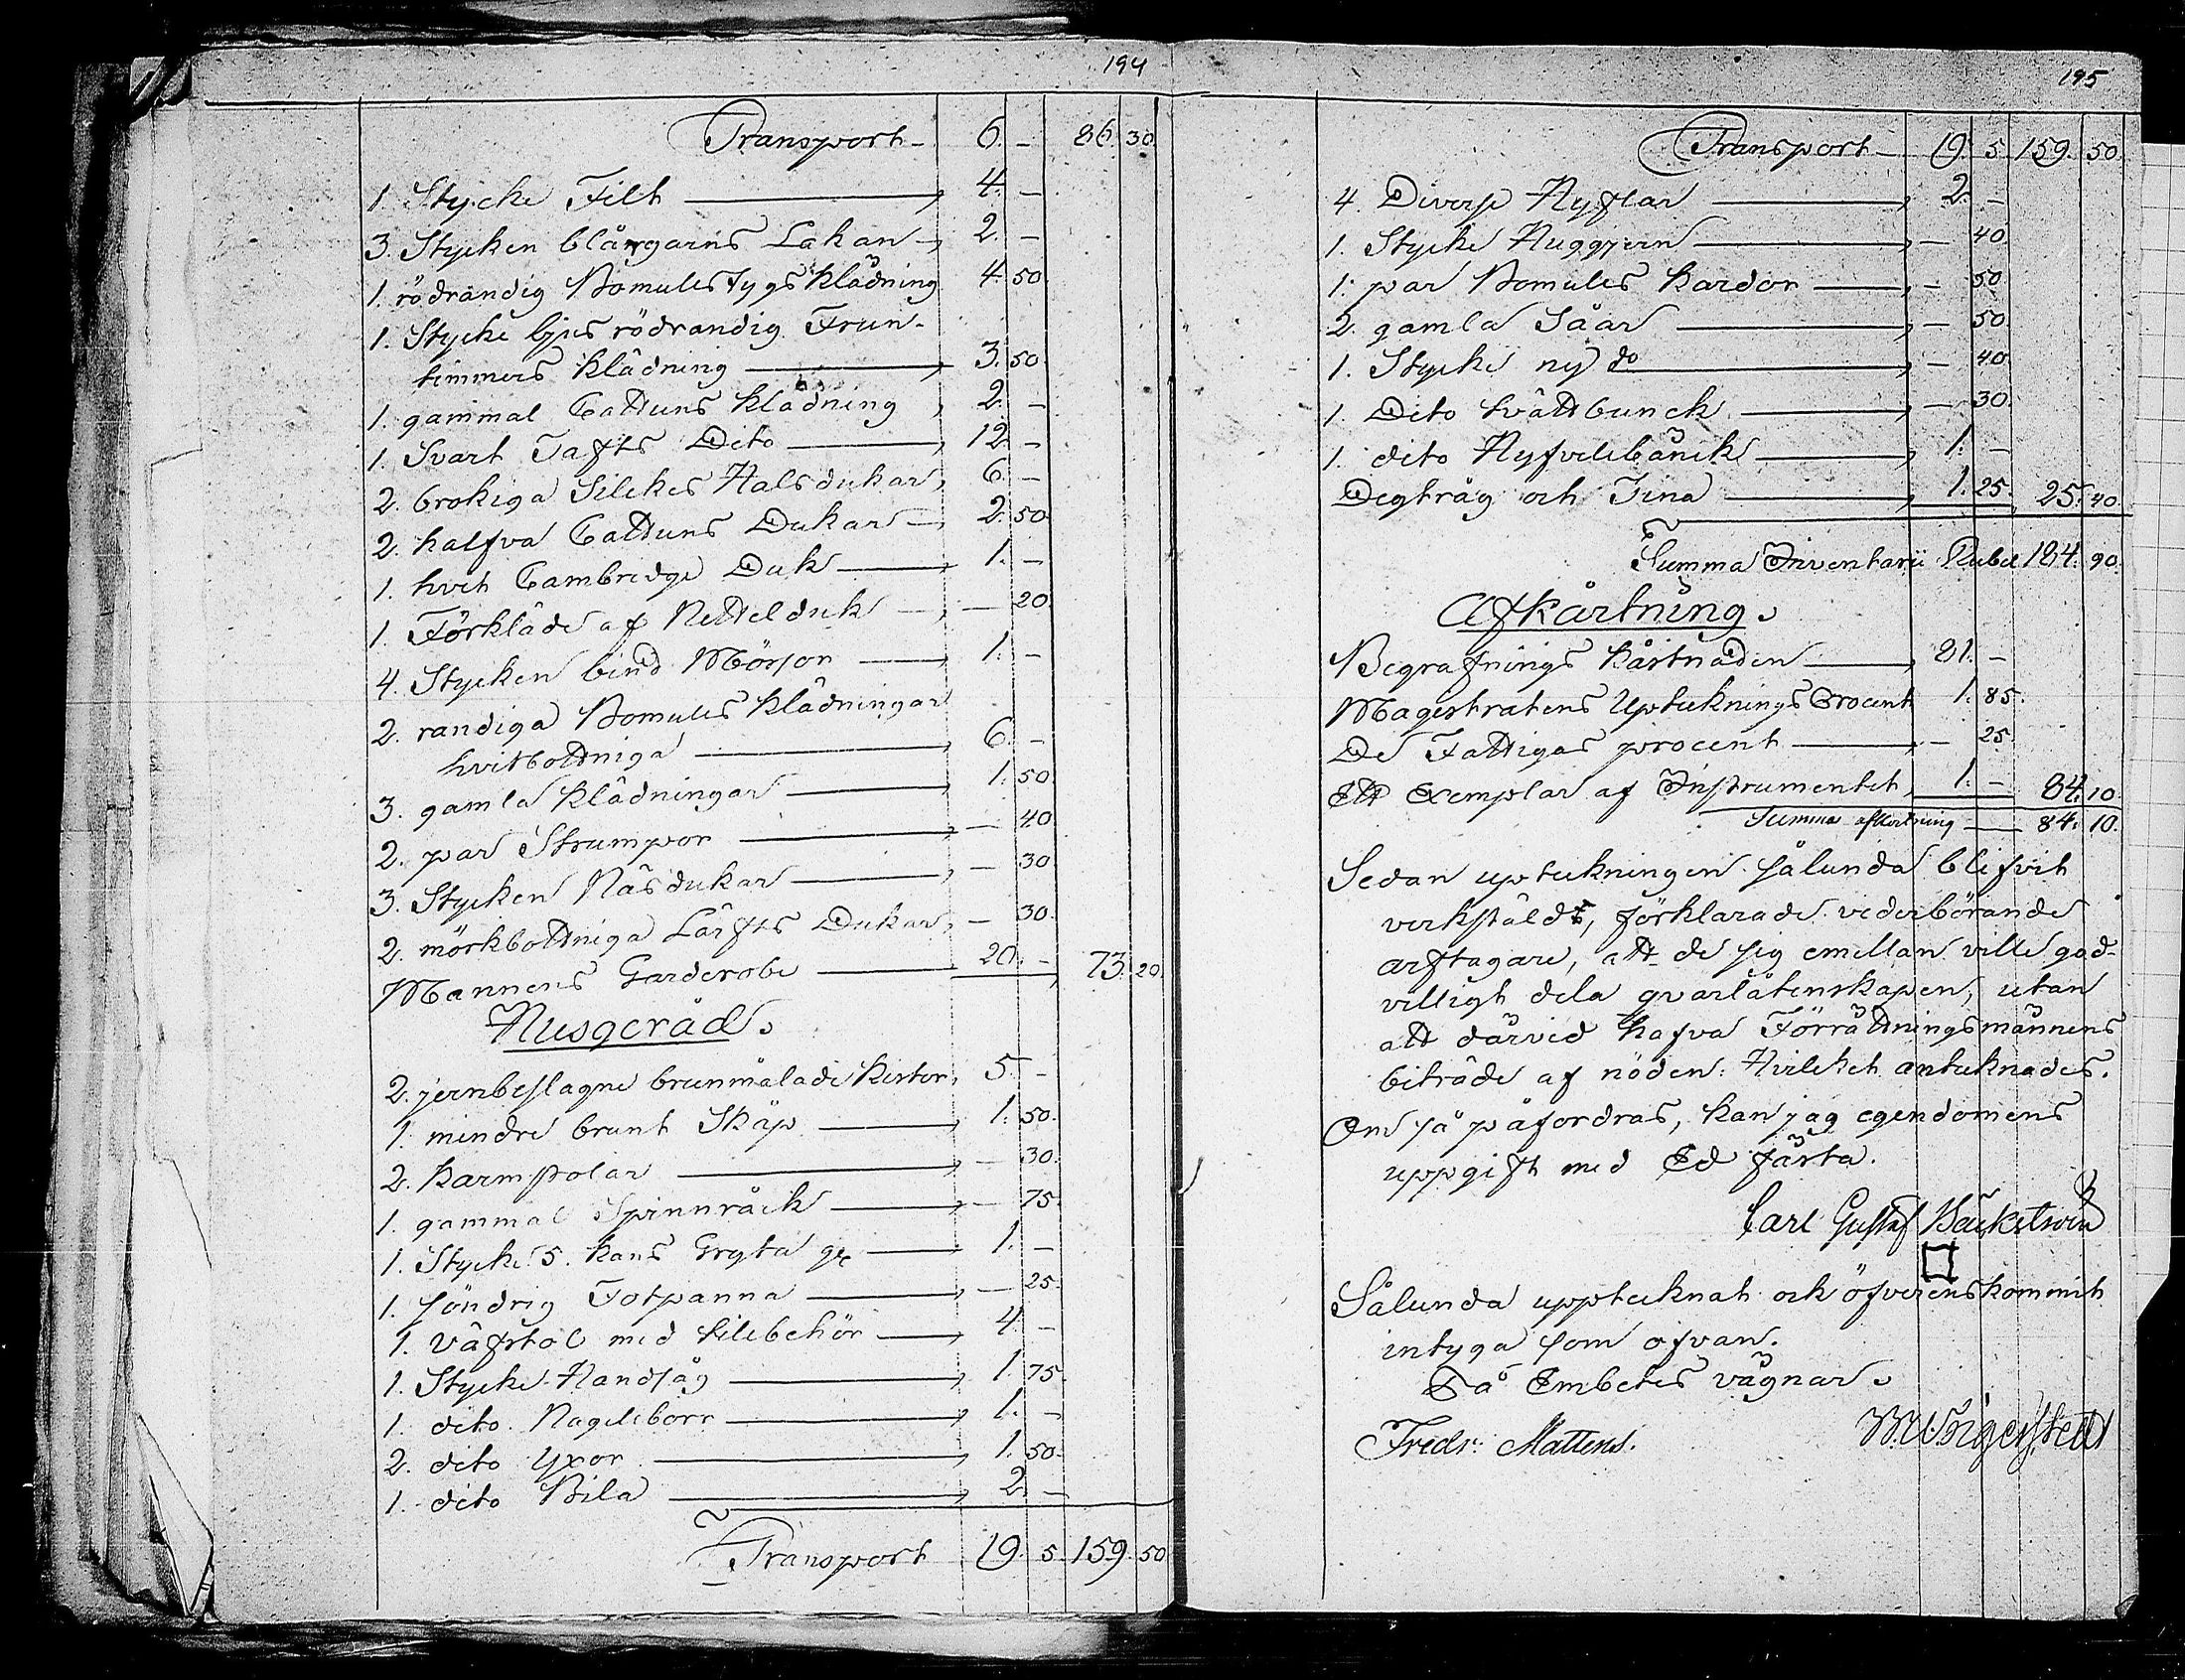 194
Transport 6. - 86. 30.
1. Stycke Filt 4. -
3. Stycken blångarns Lakan 2. -
1. rödrandig Bomulls Tygs Klädning 4. 50.
1. Stycke ljus rödrandig Frun-
timmers Klädning 3. 50.
1. gammal Cattuns Klädning 2. -
1. Svart Tafts Dito 12. -
2. brokiga Silckes Halsdukar 6. -
2. halfva Cattuns Dukar 2. 50.
1. hvit Cambridge Duk 1. -
1. Förkläde af Nettelduk - 20.
4. Stycken bind Mössor 1. -
2. randiga Bomulls Klädningar
hvitbottniga 6. -
3. gamla Klädningar 1. 50.
2. par Strumpor - 40.
3. Stycken Näsdukar - 30.
2. mörkbottniga Lärfts Dukar - 30.
Mannens Garderobe 20. - 73. 20.
Husgeråd.
2. jernbeslagne brunmålade Kistor 5. -
1. mindre brunt Skåp 1. 50.
2. Karmstolar - 30.
1. gammal Spinnråck - 75.
1. Stycke 5. Kans Gryta 1. -
1. söndrig Fotpanna - 25.
1. Väfstol med tillbehör 4. -
1. Stycke Handsåg 1. 75.
1. dito Nagelborr 1. -
2. dito Yxor 1. 50.
1. dito Bila 2. -
Transport 19. 5. 159. 50.
195
Transport 19. 5. 159. 50.
4. Diverse Hyflar 2. -
1. Stycke Huggjern - 40.
1. par Bomulls Kardor - 50.
2. gamla Såar - 50.
1. Stycke ny do - 40.
1. Dito tvättbunck - 30.
1. dito Hyfvelbänck 1. -
Degtråg och Tina 1. 25. 25. 40.
Summa Inventarii Rubel 184. 90.
Afkårtning.
Begrafnings Kåstnaden 81. -
Magistratens Uptecknings Procent 1. 85.
De Fattigas procent - 25.
Ett Exemplar af Instrumentet 1. - 84. 10.
Summa afkortning 84. 10.
Sedan upteckningen sålunda blifvit
verkstäldt, förklarade vederbörande
arftagare, att de sig emellan ville god-
villigt dela qvarlåtenskapen, utan
att därvid hafva Förrättningsmännens
biträde af nöden: Hvilcket antecknades.
Om så påfordras, kan jag egendomens
uppgift med Ed fästa.
Carl Gustaf
Sålunda upptecknat och öfverenskommit
intyga som ofvan.
På Embetes vägnar.
Fredr: Mattens.